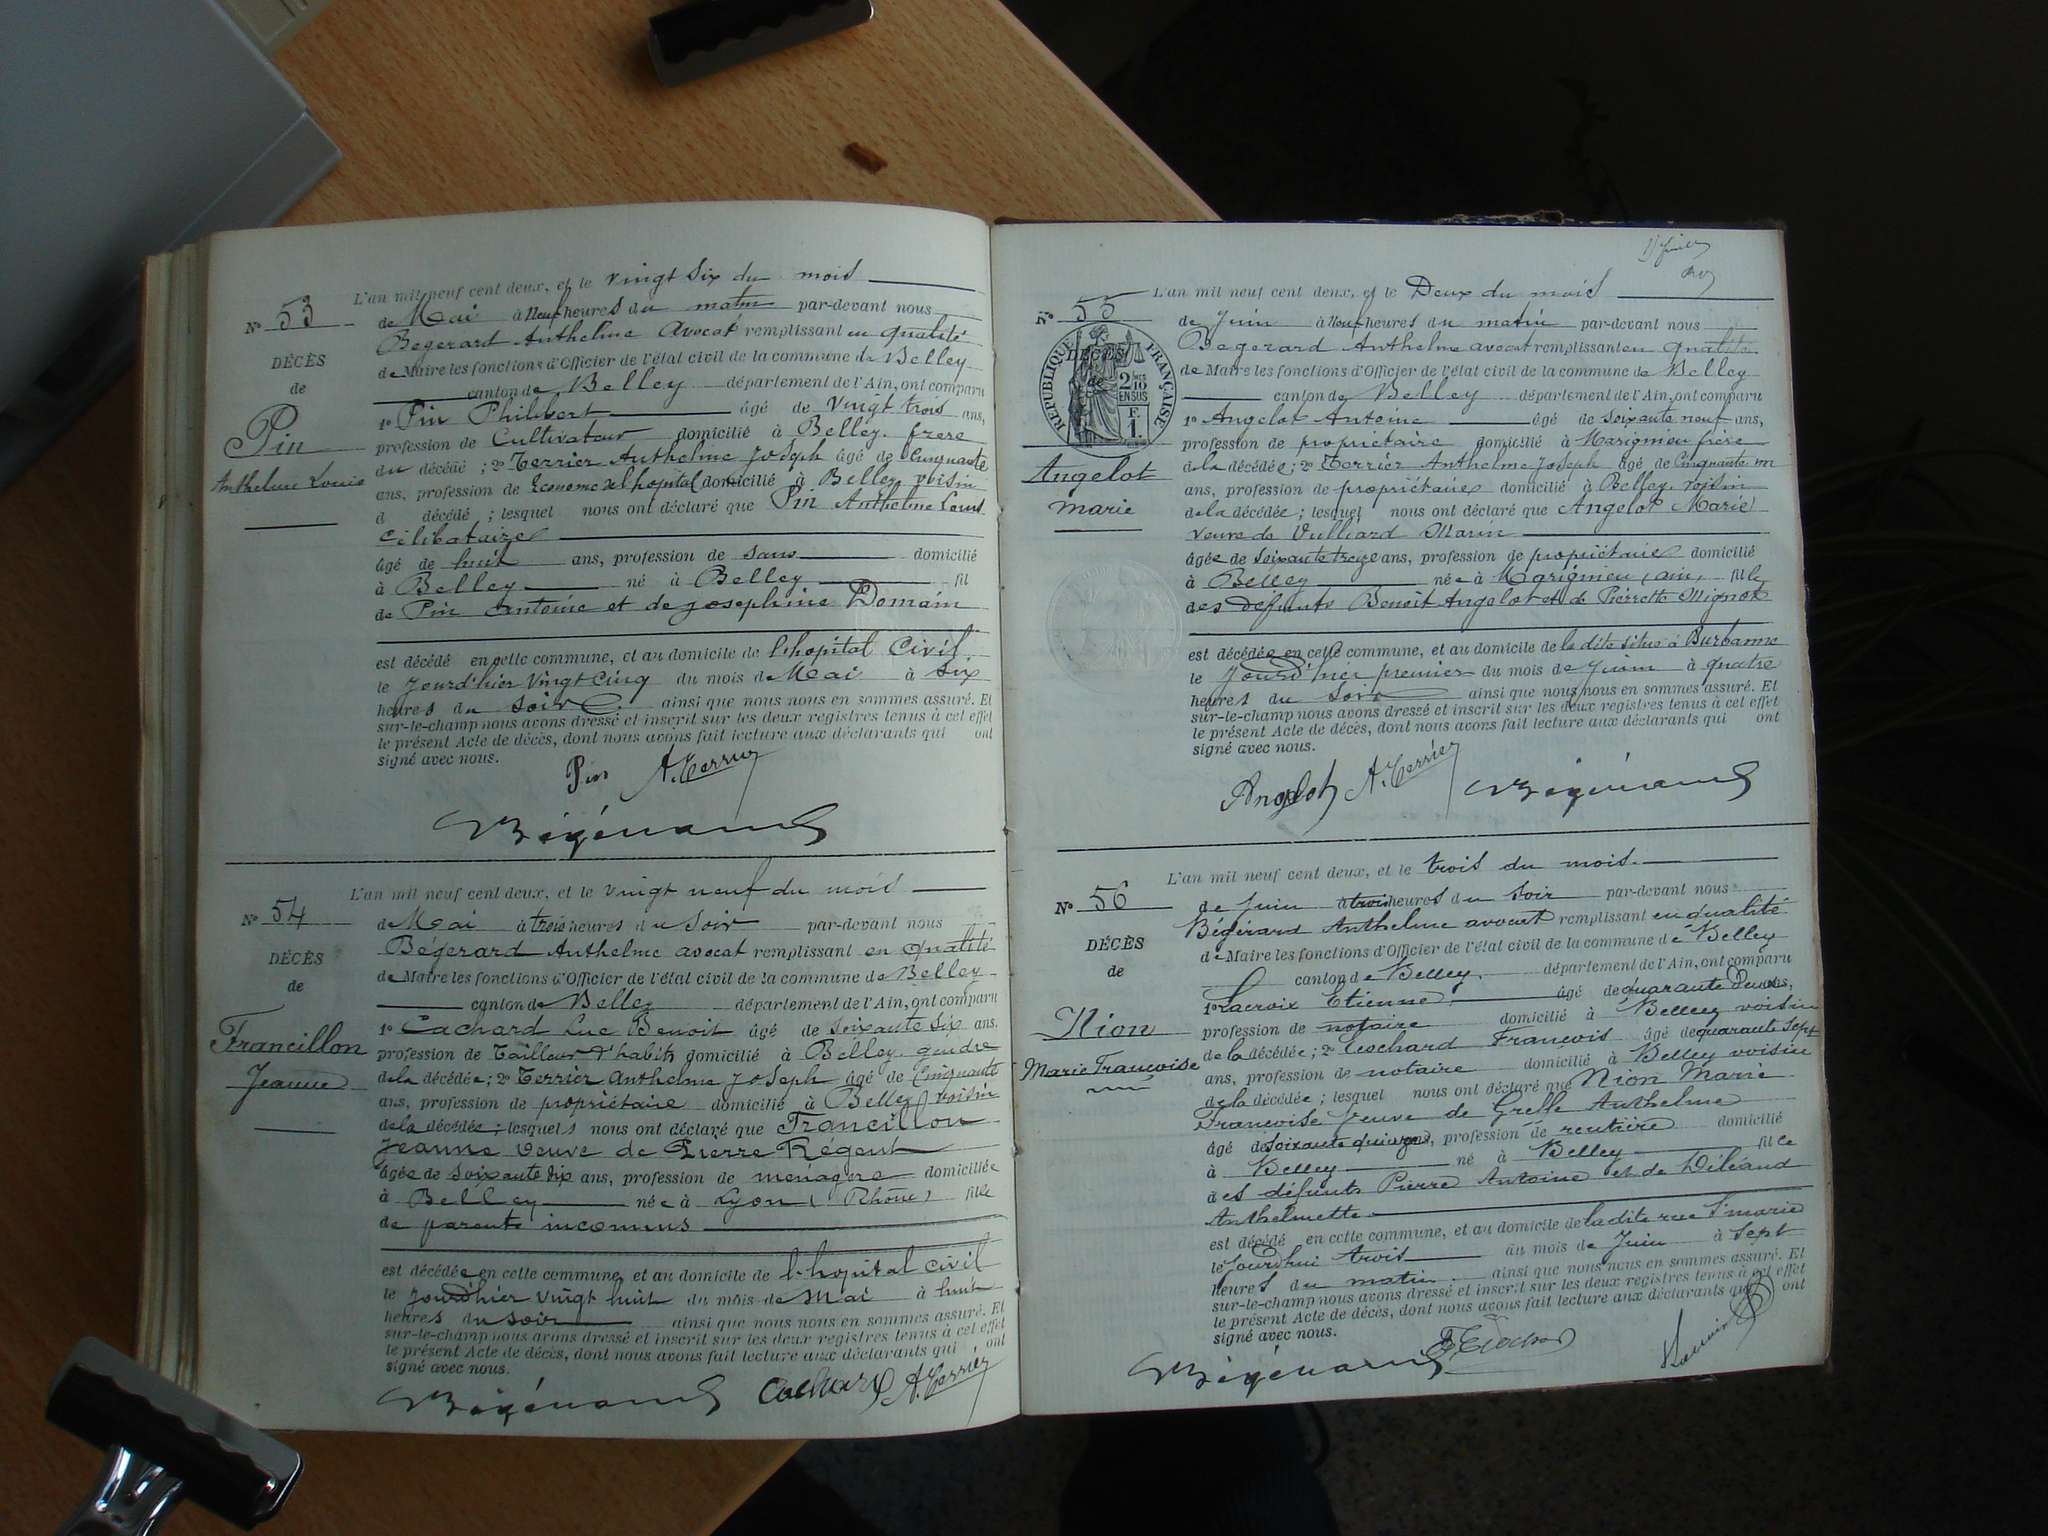 L'an mil neuf cent deux, et le vingt Six du mois
N° 53
de Mai à Neuf heures du matin par-devant nous
Begerard Anthelme Avocat remplissant en qualité
DÉCÈS
de Maire les fonctions d'Officier de l'état civil de la commune de Belley
de
canton de Belley département de l'Ain, ont comparu
Pin
1° Pin Philibert âgé de Vingt trois ans,
profession de Cultivateur domicilié à Belley. frère
Anthelme Louis
du décédé ; 2° Terrier Anthelme Joseph âgé de Cinquante
ans, profession de Econome de l'hopital domicilié à Belley voisin
d décédé ; lesquel nous ont déclaré que Pin Anthelme Louis
Célibataire
âgé de huit ans, profession de sans domicilié
à Belley né à Belley fil
de Pin Antoine et de Josephine Domain
est décédé en cette commune, et au domicile de l'hopital Civil
le Jourd'hier Vingt Cinq du mois de Mai à Six
heures du Soir ainsi que nous nous en sommes assuré. Et
sur-le-champ nous avons dressé et inscrit sur les deux registres tenus à cet effet
le présent Acte de décès, dont nous avons fait lecture aux déclarants qui ont
signé avec nous.
Pin A. Terrier
Bégérard
L'an mil neuf cent deux, et le vingt neuf du mois
N° 54
de Mai à trois heures du Soir par-devant nous
Begerard Anthelme avocat remplissant en qualité
DÉCÈS
de Maire les fonctions d'Officier de l'état civil de la commune de Belley
de
canton de Belley département de l'Ain, ont comparu
Francillon
1° Cachard Luc Benoit âgé de Soixante Six ans,
profession de Tailleur d'habits domicilié à Belley. gendre
Jeanne
de la décédée ; 2° Terrier Anthelme Joseph âgé de Cinquante
ans, profession de propriétaire domicilié à Belley voisin
de la décédée ; lesquels nous ont déclaré que Francillon
Jeanne Veuve de Pierre Régent
âgée de Soixante dix ans, profession de ménagère domiciliée
à Belley née à Lyon (Rhône) fille
de parents inconnus
est décédée en cette commune, et au domicile de l'hopital civil
le Jourd'hier vingt huit du mois de Mai à huit
heures du soir ainsi que nous nous en sommes assuré. Et
sur-le-champ nous avons dressé et inscrit sur les deux registres tenus à cet effet
le présent Acte de décès, dont nous avons fait lecture aux déclarants qui ont
signé avec nous.
Bégérard Cachard A. Terrier
L'an mil neuf cent deux, et le Deux du mois
N° 55
de Juin à Neuf heures du matin par-devant nous
Begerard Anthelme avocat remplissant en qualité
DÉCÈS
de
RÉPUBLIQUE FRANÇAISE
2/10 EN SUS
F. 1.
de Maire les fonctions d'Officier de l'état civil de la commune de Belley
canton de Belley département de l'Ain, ont comparu
1° Angelot Antoine âgé de Soixante neuf ans,
profession de propriétaire domicilié à Marignieu frère
Angelot
de la décédée ; 2° Terrier Anthelme Joseph âgé de Cinquante un
ans, profession de propriétaire domicilié à Belley. voisin
marie
de la décédée ; lesquel nous ont déclaré que Angelot Marie
veuve de Vulliard Marin
âgée de Soixante treize ans, profession de propriétaire domicilié
à Belley née à Marignieu (ain) fille
des défunts Benoît Angelot et de Pierrette Mignot
est décédée en cette commune, et au domicile de la dite situé à Burbanne
le Jourd'hier premier du mois de Juin à quatre
heures du Soir ainsi que nous nous en sommes assuré. Et
sur-le-champ nous avons dressé et inscrit sur les deux registres tenus à cet effet
le présent Acte de décès, dont nous avons fait lecture aux déclarants qui ont
signé avec nous.
Angelot A. Terrier Bégérard
L'an mil neuf cent deux, et le trois du mois
N° 56
de Juin à trois heures du soir par-devant nous
Bégérard Anthelme avocat remplissant en qualité
DÉCÈS
de Maire les fonctions d'Officier de l'état civil de la commune de Belley
de
canton de Belley département de l'Ain, ont comparu
1° Lacroix Etienne âgé de quarante Deux ans,
Nion
profession de notaire domicilié à Belley voisin
de la décédée ; 2° François âgé de quarante Sept
Marie Françoise
ans, profession de notaire domicilié à Belley voisin
de la décédée ; lesquel nous ont déclaré que Nion Marie
Françoise Veuve de Grelle Anthelme
âgé de Soixante quinze ans, profession de rentière domicilié
à Belley né à Belley fille
des défunts Pierre Antoine et de
Anthelmette
est décédé en cette commune, et au domicile de la dite rue Ste marie
le Jourd'hui trois du mois de Juin à Sept
heures du matin ainsi que nous nous en sommes assuré. Et
sur-le-champ nous avons dressé et inscrit sur les deux registres tenus à cet effet
le présent Acte de décès, dont nous avons fait lecture aux déclarants qui ont
signé avec nous.
Bégérard